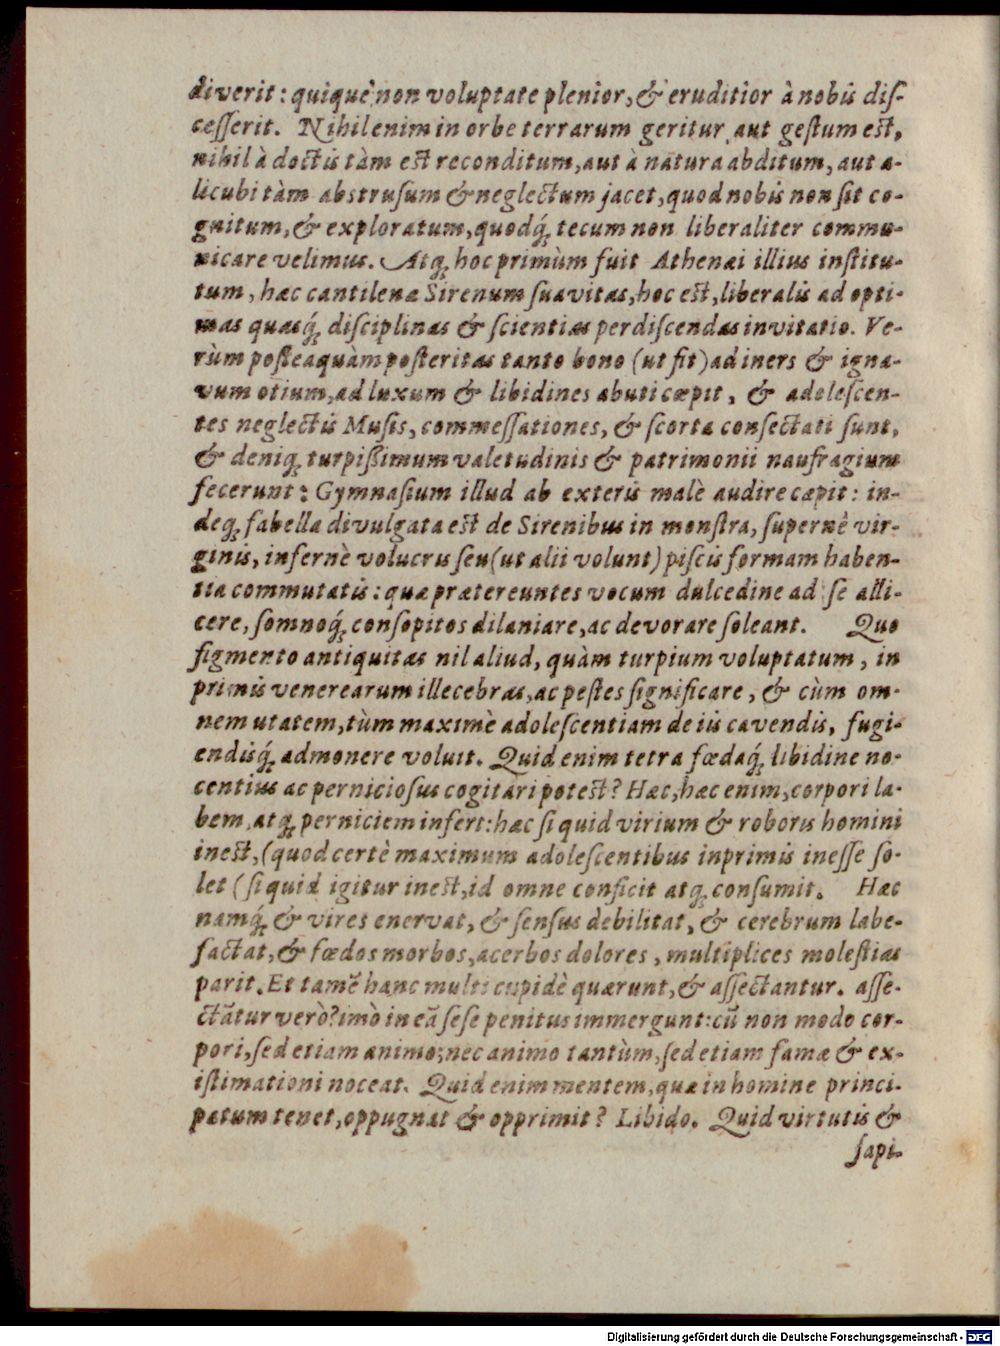 diverit: quiquè non voluptate plenior, & eruditior à nobis diſ-
ceſſerit. Nihil enim in orbe terrarum geritur aut geſtum eſt,
nihil à doctis tàm eſt reconditum, aut à natura abditum, aut a-
licubi tàm abstruſum & neglectum jacet, quod nobis non ſit co-
gnitum, & exploratum, quodq́; tecum non liberaliter commu-
nicare velimus. Atq; hoc primùm fuit Athenæi illius inſtitu-
tum, hæc cantilenæ Sirenum ſuavitas, hoc eſt, liberalis ad opti-
mas quasq́; diſciplinas & ſcientias perdiſcendas invitatio. Ve-
rùm poſteaquàm poſteritas tanto bono (ut fit) ad iners & igna-
vum otium, ad luxum & libidines abuti cæpit, & adoleſcen-
tes neglectis Muſis, commeſſationes, & ſcorta conſectati ſunt,
& deniq; turpißimum valetudinis & patrimonii naufragium
fecerunt: Gymnaſium illud ab exteris malè audire cæpit: in-
deq; fabella divulgata eſt de Sirenibus in monſtra, ſupernè vir-
ginis, infernè volucris ſeu (ut alii volunt) piſcis formam haben-
tia commutatis: quæ prætereuntes vocum dulcedine ad ſe alli-
cere, ſomnoq́; conſopitos dilaniare, ac devorare ſoleant. Quo
figmento antiquitas nil aliud, quàm turpium voluptatum, in
primis venerearum illecebras, ac peſtes ſignificare, & cùm om-
nem ætatem, tùm maximè adoleſcentiam de iis cavendis, fugi-
endisq́; admonere voluit. Quid enim tetra fœdaq́; libidine no-
centius ac pernicioſus cogitari poteſt? Hæc, hæc enim, corpori la-
bem, atq; perniciem infert: hæc ſi quid virium & roboris homini
ineſt, (quod certè maximum adoleſcentibus inprimis ineſſe ſo-
let (ſi quid igitur ineſt, id omne conficit atq; conſumit. Hæc
namq́; & vires enervat, & ſenſus debilitat, & cerebrum labe-
factat, & fœdos morbos, acerbos dolores, multiplices moleſtias
parit. Et tamẽ hanc multi cupidè quærunt, & aſſectantur. aſſe-
ctãtur verò? imò in eã ſeſe penitus immergunt: cũ non modo cor-
pori, ſed etiam animo; nec animo tantùm, ſed etiam famæ & ex-
iſtimationi noceat. Quid enim mentem, quæ in homine princi-
patum tenet, oppugnat & opprimit? Libido. Quid virtutis &
ſapi-
Digitalisierung gefördert durch die Deutsche Forschungsgemeinschaft - DFG